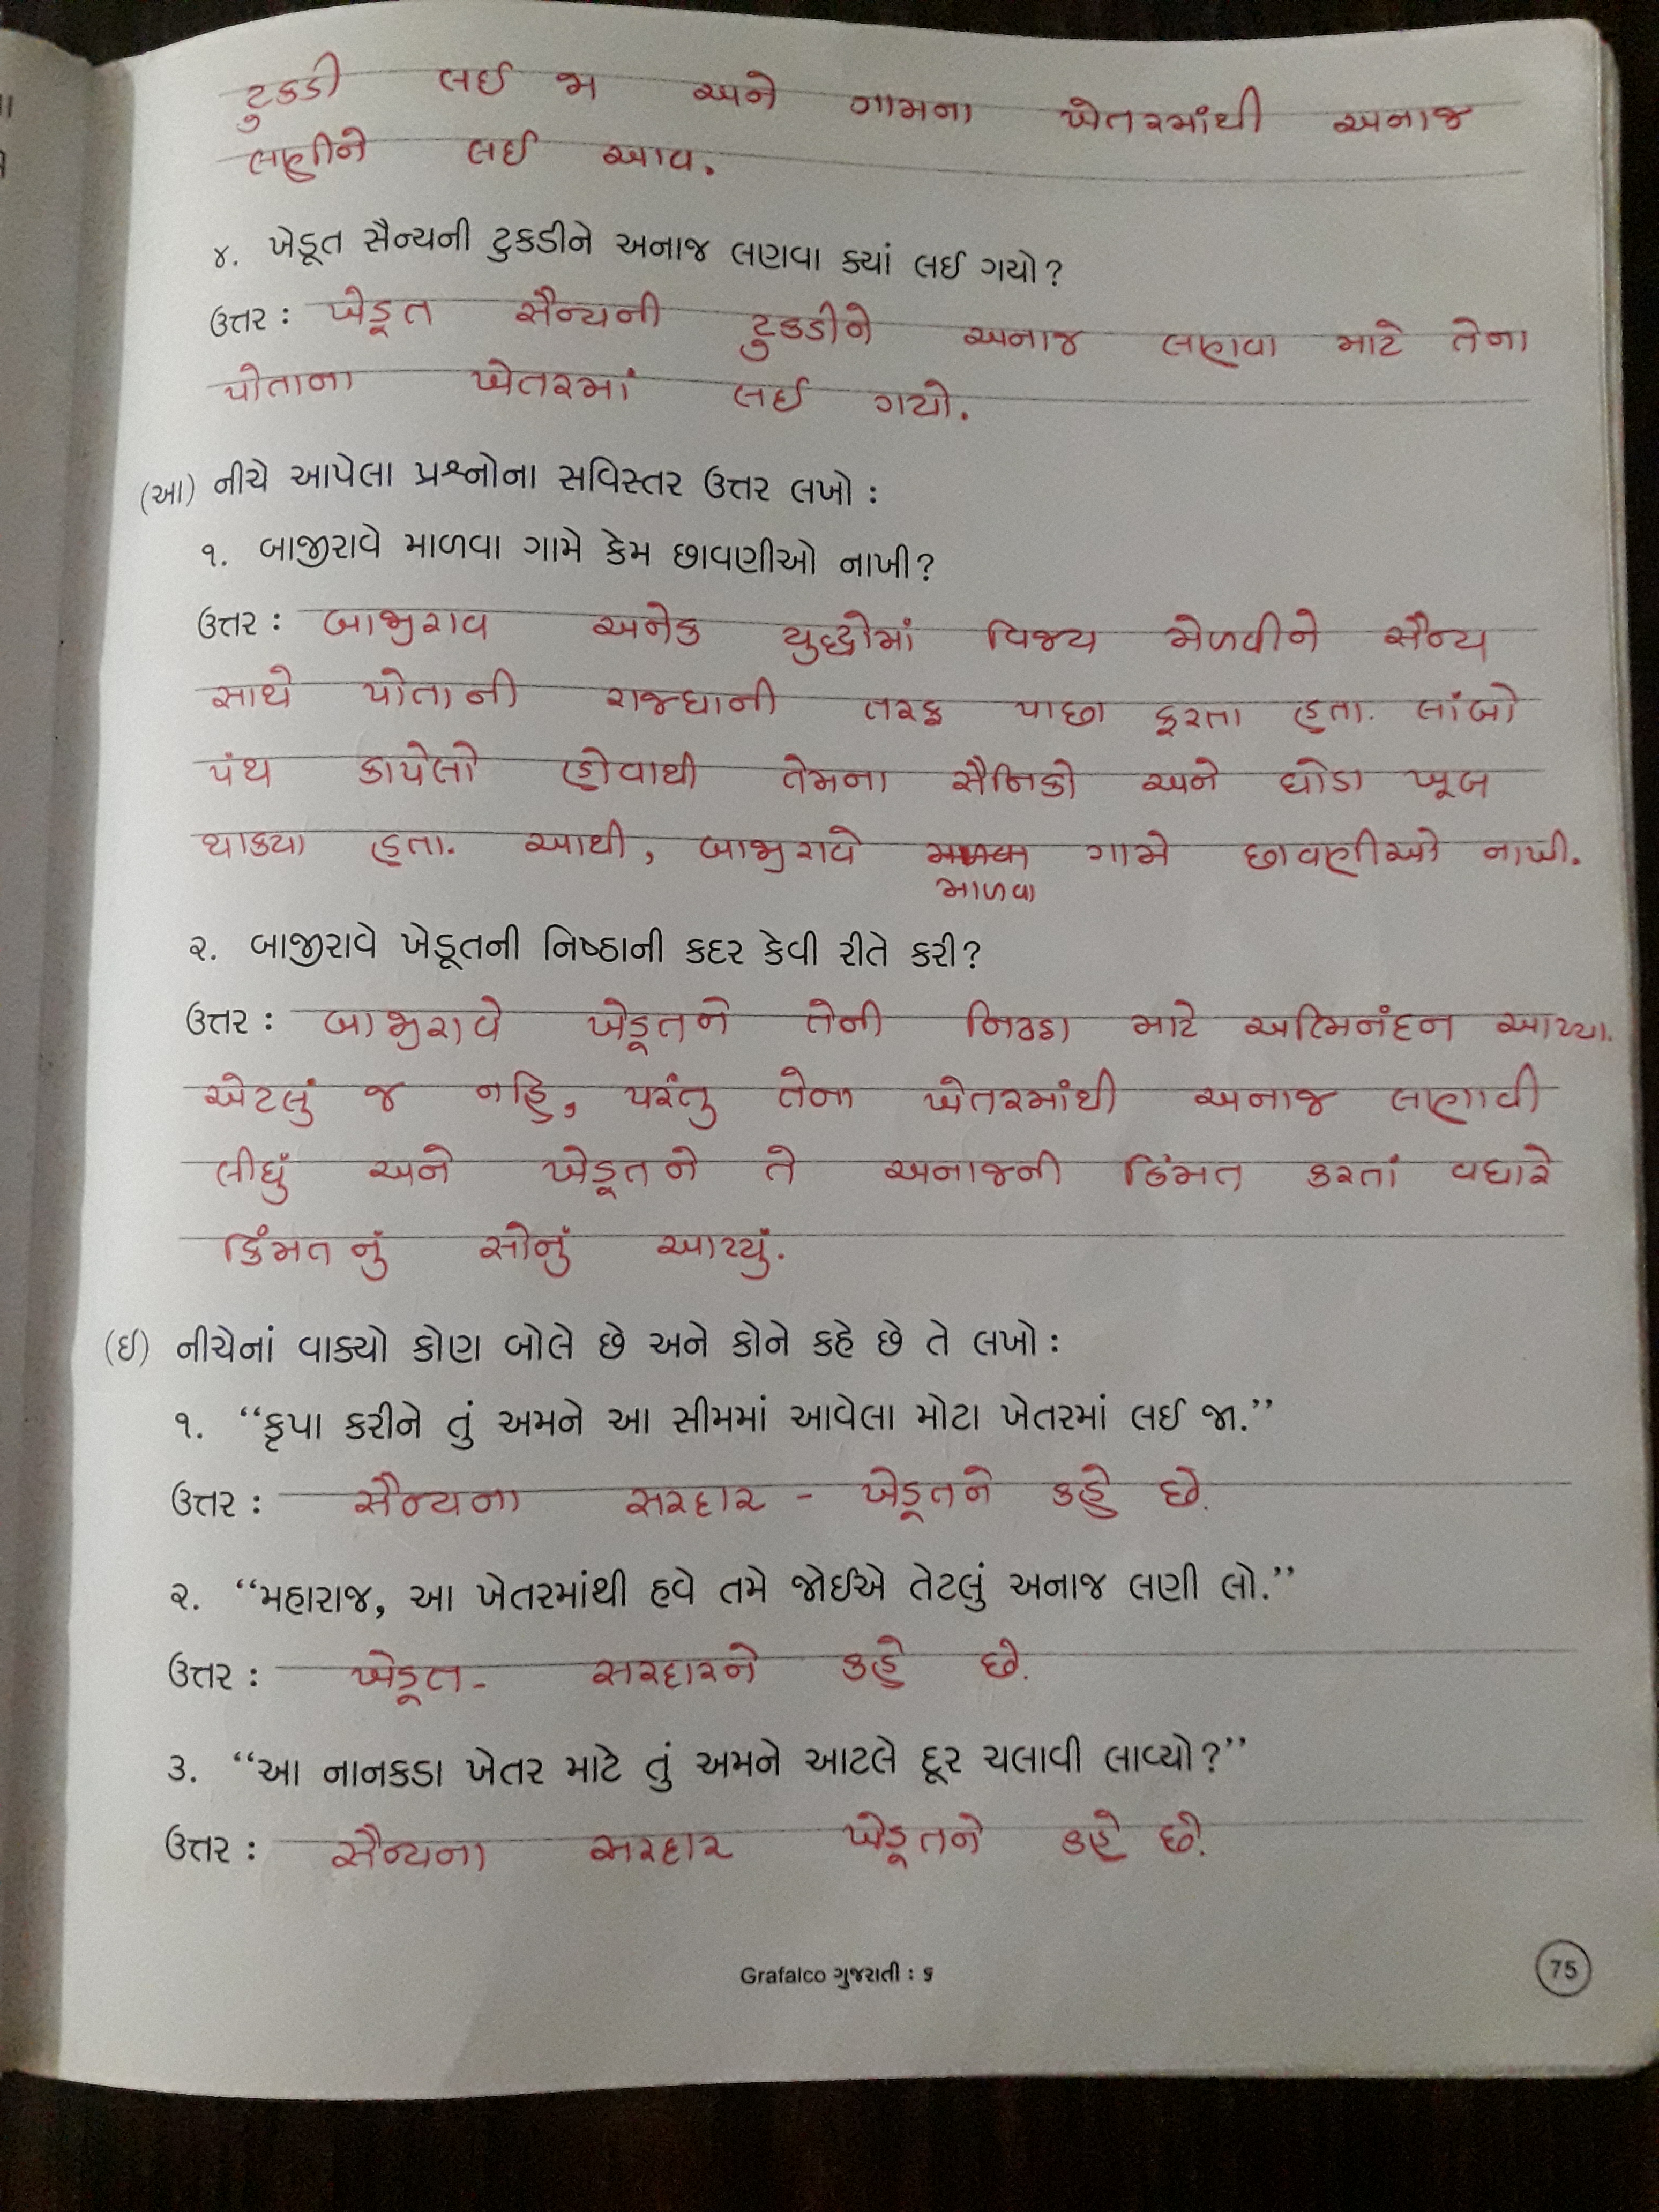 ટુકડી લઈ જા અને ગામના ખેતરમાંથી અનાજ
લણીને લઈ આવ.
૪. ખેડૂત સૈન્યની ટુકડીને અનાજ લણવા ક્યાં લઈ ગયો?
ઉત્તર : ખેડૂત સૈન્યની ટુકડીને અનાજ લણવા માટે તેના
પોતાના ખેતરમાં લઈ ગયો.
(આ) નીચે આપેલા પ્રશ્નોના સવિસ્તર ઉત્તર લખો :
૧. બાજીરાવે માળવા ગામે કેમ છાવણીઓ નાખી?
ઉત્તર : બાજીરાવ અનેક યુદ્ધોમાં વિજય મેળવીને સૈન્ય
સાથે પોતાની રાજધાની તરફ પાછા ફરતા હતા. લાંબો
પંથ કાપેલો હોવાથી તેમના સૈનિકો અને ઘોડા ખૂબ
થાક્યા હતા. આથી, બાજીરાવે ગામે છાવણીઓ નાખી.
માળવા
૨. બાજીરાવે ખેડૂતની નિષ્ઠાની કદર કેવી રીતે કરી?
ઉત્તર : બાજીરાવે ખેડૂતને તેની નિષ્ઠા માટે અભિનંદન આપ્યા.
એટલું જ નહિ, પરંતુ તેના ખેતરમાંથી અનાજ લણાવી
લીધું અને ખેડૂતને તે અનાજની કિંમત કરતાં વધારે
કિંમતનું સોનું આપ્યું.
(ઈ) નીચેનાં વાક્યો કોણ બોલે છે અને કોને કહે છે તે લખો :
૧. “કૃપા કરીને તું અમને આ સીમમાં આવેલા મોટા ખેતરમાં લઈ જા.”
ઉત્તર : સૈન્યના સરદાર - ખેડૂતને કહે છે.
૨. “મહારાજ, આ ખેતરમાંથી હવે તમે જોઈએ તેટલું અનાજ લણી લો.”
ઉત્તર : ખેડૂત - સરદારને કહે છે.
૩. “આ નાનકડા ખેતર માટે તું અમને આટલે દૂર ચલાવી લાવ્યો?”
ઉત્તર : સૈન્યના સરદાર ખેડૂતને કહે છે.
Grafalco ગુજરાતી : ૬
75